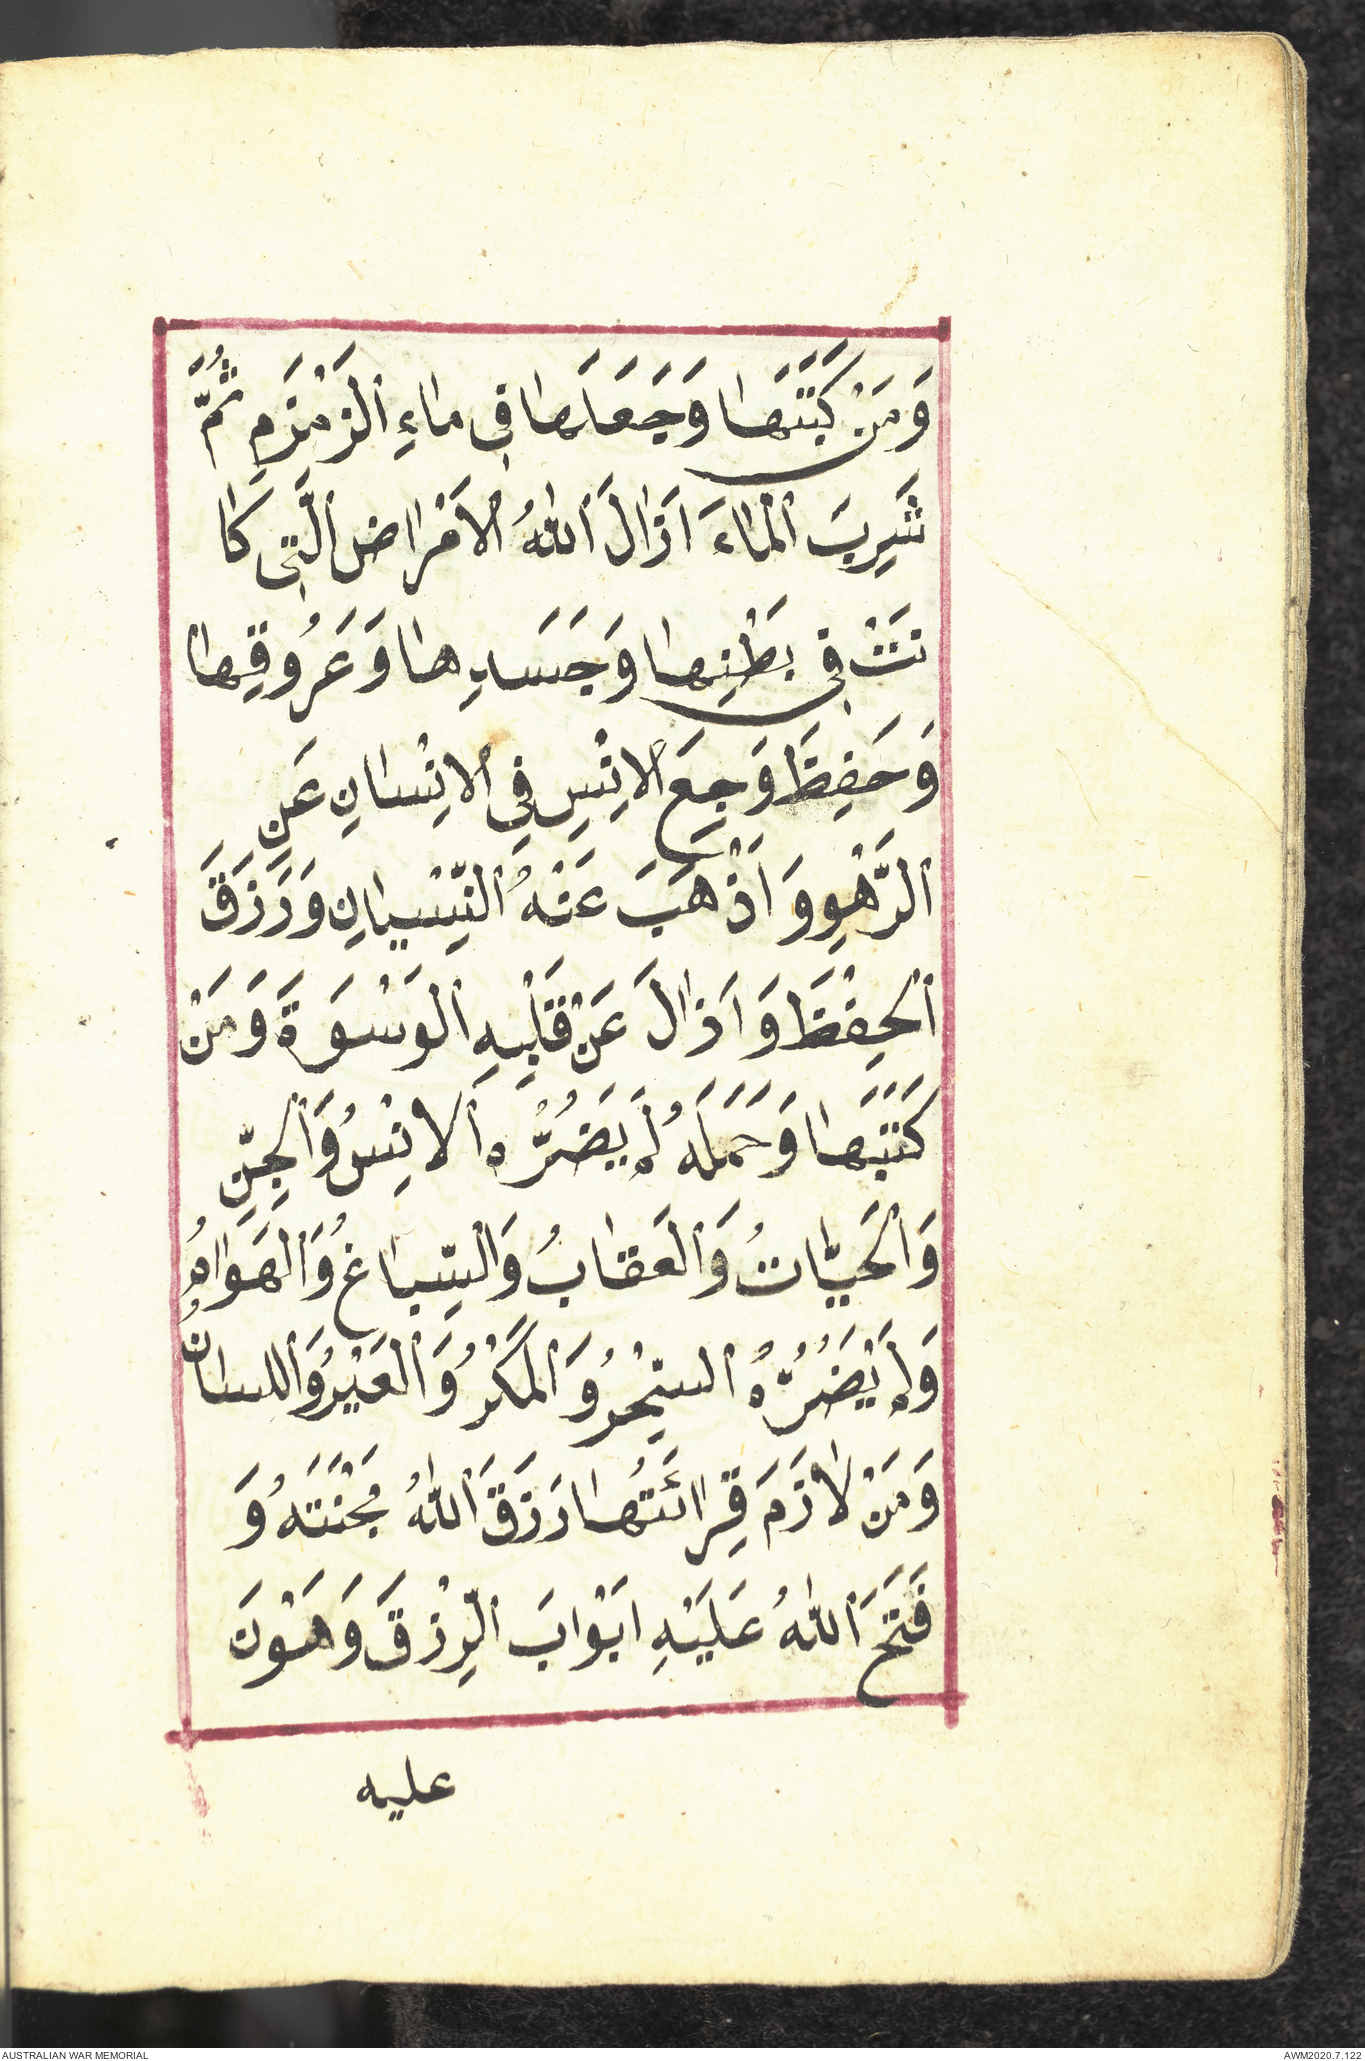 وَمَنْ كَتَبَهَا وَجَعَلَهَا فِى مَاءِ الزَمْزَمِ ثُمَّ
شَرِبَ الْمَاءَ اَزَالَ اللهُ الْاَمْرَاضَ الَّتِى كَا
نَتْ فِى بَطْنِهَا وَجَسَدِهَا وَعَرُوقِهَا
وَحَفِظَ وَجِعَ الاِنْسِ فِى الاِنْسَانِ عَنِ
الرَّهْوِ وَاَذْهَبَ عَنْهُ النِّسْيَانِ وَرَزَقَ
الْحِفْظَ وَاَزَالَ عَنْ قَلْبِهِ الْوَسْوَرَةَ وَمَنْ
كَتَبَهَا وَحَمَلَهُ لَمْ يَضُرُّه اَلاِنْسُ وَالْجِنِّ
وَالْحَيَّاتُ وَالْعَقَابُ وَالسِّبَاغُ وَالْهَوَامُ
وَلَمْ يَضُرُّهُ السِّحْرُ وَالْمَكْرُ وَالْعَيْرُ وَاللسانُ
وَمَنْ لَازَمَ قِرَائَتُهَا رَزَقَ اللهُ مُجْنَتَهُ وَ
فَتَحَ اللهُ عَلَيْهِ اَبْوَابَ الرِّزْقَ وَهَوْنَ
عليه